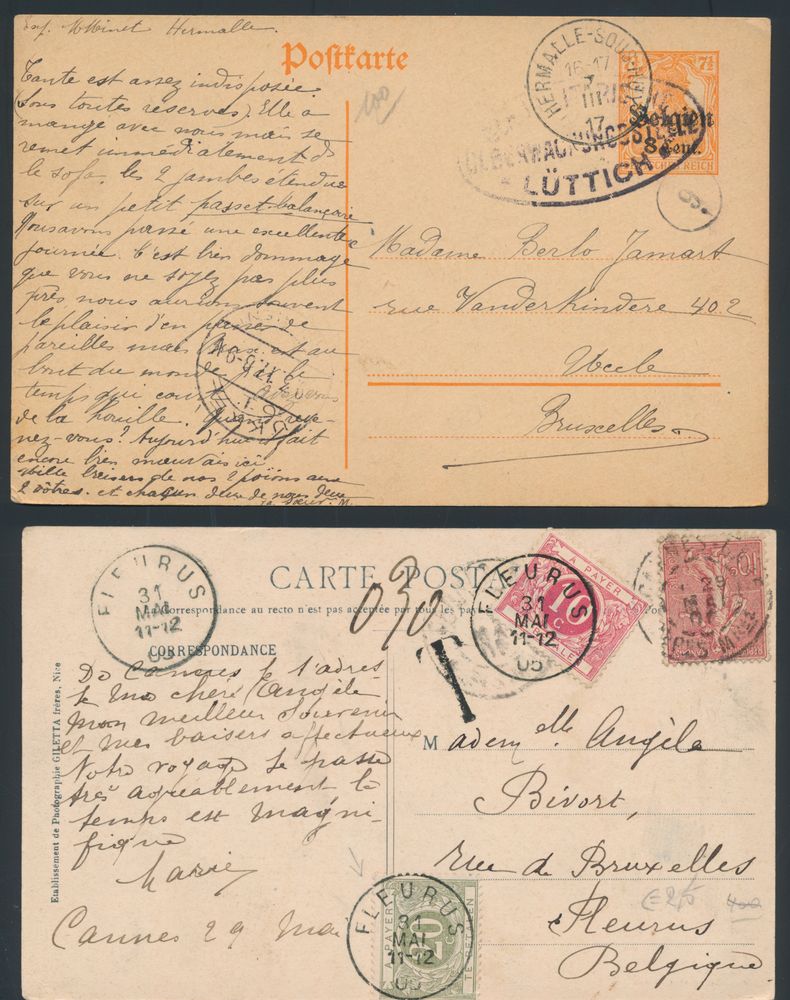 Exp. Hermalle.
Postkarte
Tante est assez indisposée
(sous toutes reserves). Elle a
mangé avec nous mais se
remet immédiatement ds
le sofa, les 2 jambes étendues
sur un petit passet-balançoire
Nous avons passé une excellente
journée. C'est bien dommage
que vous ne soyez pas plus
près nous aurions souvent
le plaisir d'en passer de
pareilles mais est au
bout du monde par le
temps qui court. Avez vous
de la houille. Quand reve-
nez-vous? Aujourd'hui il fait
encore bien mauvais ici
Mille baisers de nos 2 aux
2 vôtres. et chacun deux de nous deux
M.
100
HERMALLE-SOUS-
16-17
17
LÜTTICH
7½
Belgien
8 Cent.
REICH
UKKEL
Madame Berlo Jamart
rue Vanderkindere 402
Uccle
Bruxelles
CARTE POSTA
La Correspondance au recto n'est pas acceptée par tous les pays
CORRESPONDANCE
FLEURUS
31
MAI
11-12
05
030
T
FLEURUS
31
MAI
11-12
05
A PAYER
10
C
10
De Cannes je t'adres-
se ma chère Angèle
mon meilleur souvenir
et mes baisers affectueux
Notre voyage se passe
très agréablement le
temps est magni-
fique
Marie
Cannes 29 Mai
Etablissement de Photographie GILETTA frères, Nice
M adem elle Angèle
Bivort,
rue de Bruxelles
Fleurus
Belgique
FLEURUS
31
MAI
11-12
05
A PAYER
20
TE BETALEN